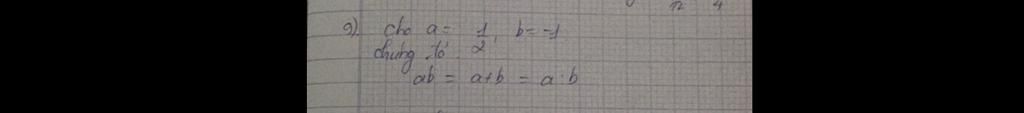 12 4
9). cho a = 1/2, b = -1
chứng tỏ
ab = a+b = a:b